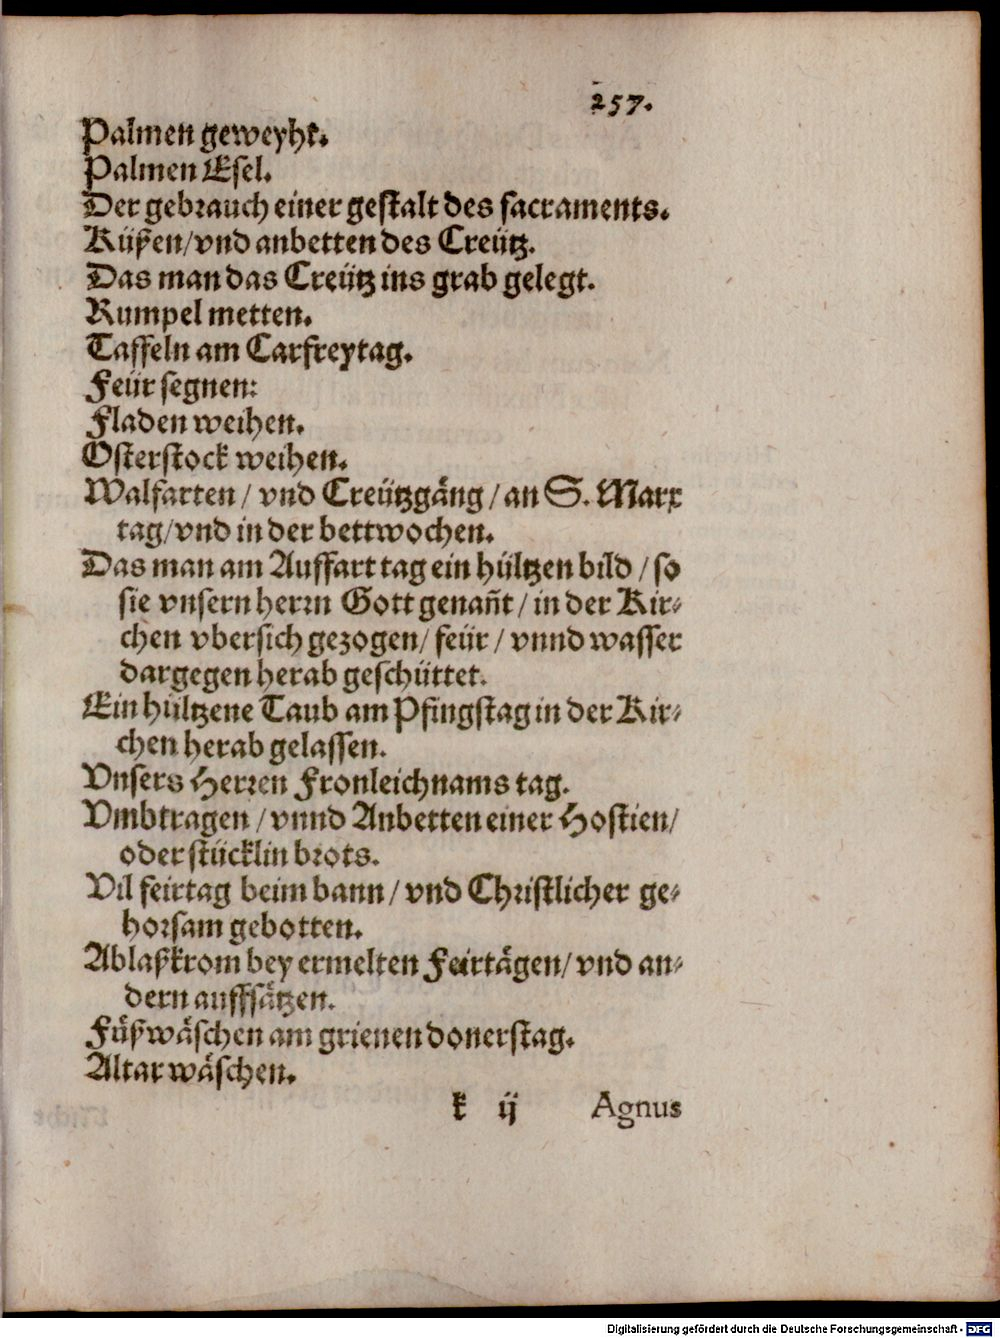 257.
Palmen geweyht.
Palmen Esel.
Der gebrauch einer gestalt des sacraments.
Küßen/vnd anbetten des Creütz.
Das man das Creütz ins grab gelegt.
Rumpel metten.
Taffeln am Carfreytag.
Feür segnen:
Fladen weihen.
Osterstock weihen.
Walfarten / vnd Creützgäng / an S. Marx
tag/vnd in der bettwochen.
Das man am Auffart tag ein hültzen bild / so
sie vnsern herrn Gott genañt / in der Kir⸗
chen vbersich gezogen/ feür / vnnd wasser
dargegen herab geschüttet.
Ein hültzene Taub am Pfingstag in der Kir⸗
chen herab gelassen.
Vnsers Herren Fronleichnams tag.
Vmbtragen / vnnd Anbetten einer Hostien/
oder stücklin brots.
Vil feirtag beim bann / vnd Christlicher ge⸗
horsam gebotten.
Ablaßkrom bey ermelten Feirtägen/ vnd an⸗
dern auffsätzen.
Füßwäschen am grienen donerstag.
Altar wäschen.
k ij Agnus
Digitalisierung gefördert durch die Deutsche Forschungsgemeinschaft - DFG